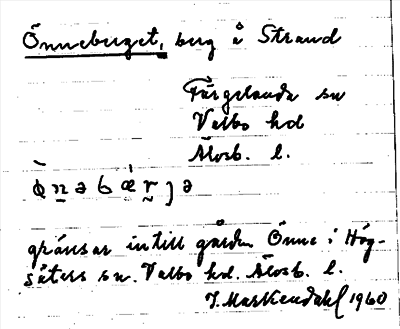 Önneberget, berg å Strand
Färgelanda sn
Valbo hd
Älvsb. l.
ò̀n̠əbæ̀r̠jə
gränsar intill gården Önne i Hög-
säters sn. Valbo hd. Älvsb. l.
J. Markendahl 1960